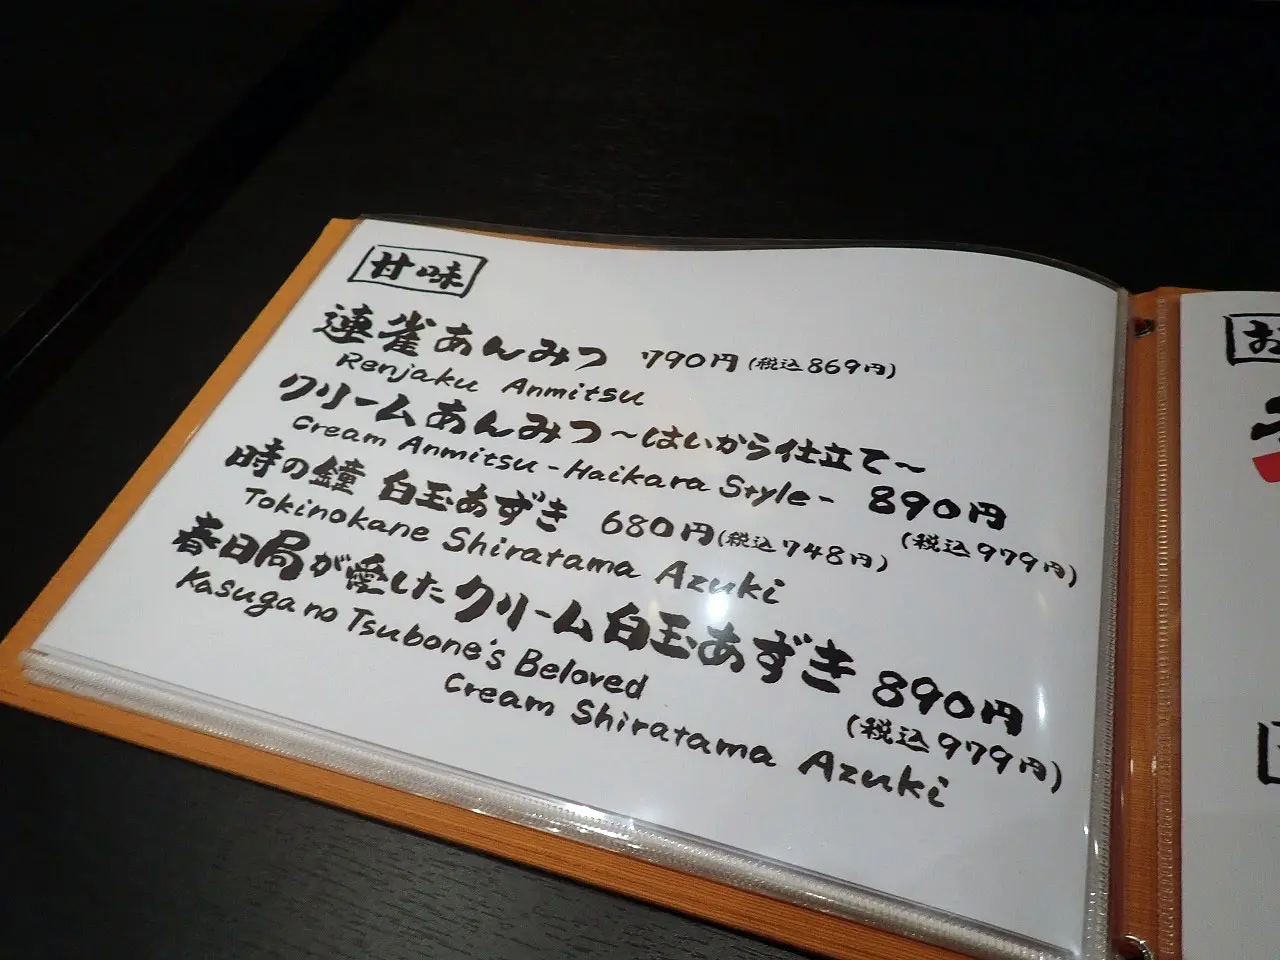 甘味
連雀あんみつ 790円(税込869円)
Renjaku Anmitsu
クリームあんみつ～はいから仕立て～
Cream Anmitsu - Haikara Style - 890円
(税込979円)
時の鐘 白玉あずき 680円(税込748円)
Tokinokane Shiratama Azuki
春日局が愛したクリーム白玉あずき 890円
(税込979円)
Kasuga no Tsubone's Beloved
Cream Shiratama Azuki
お